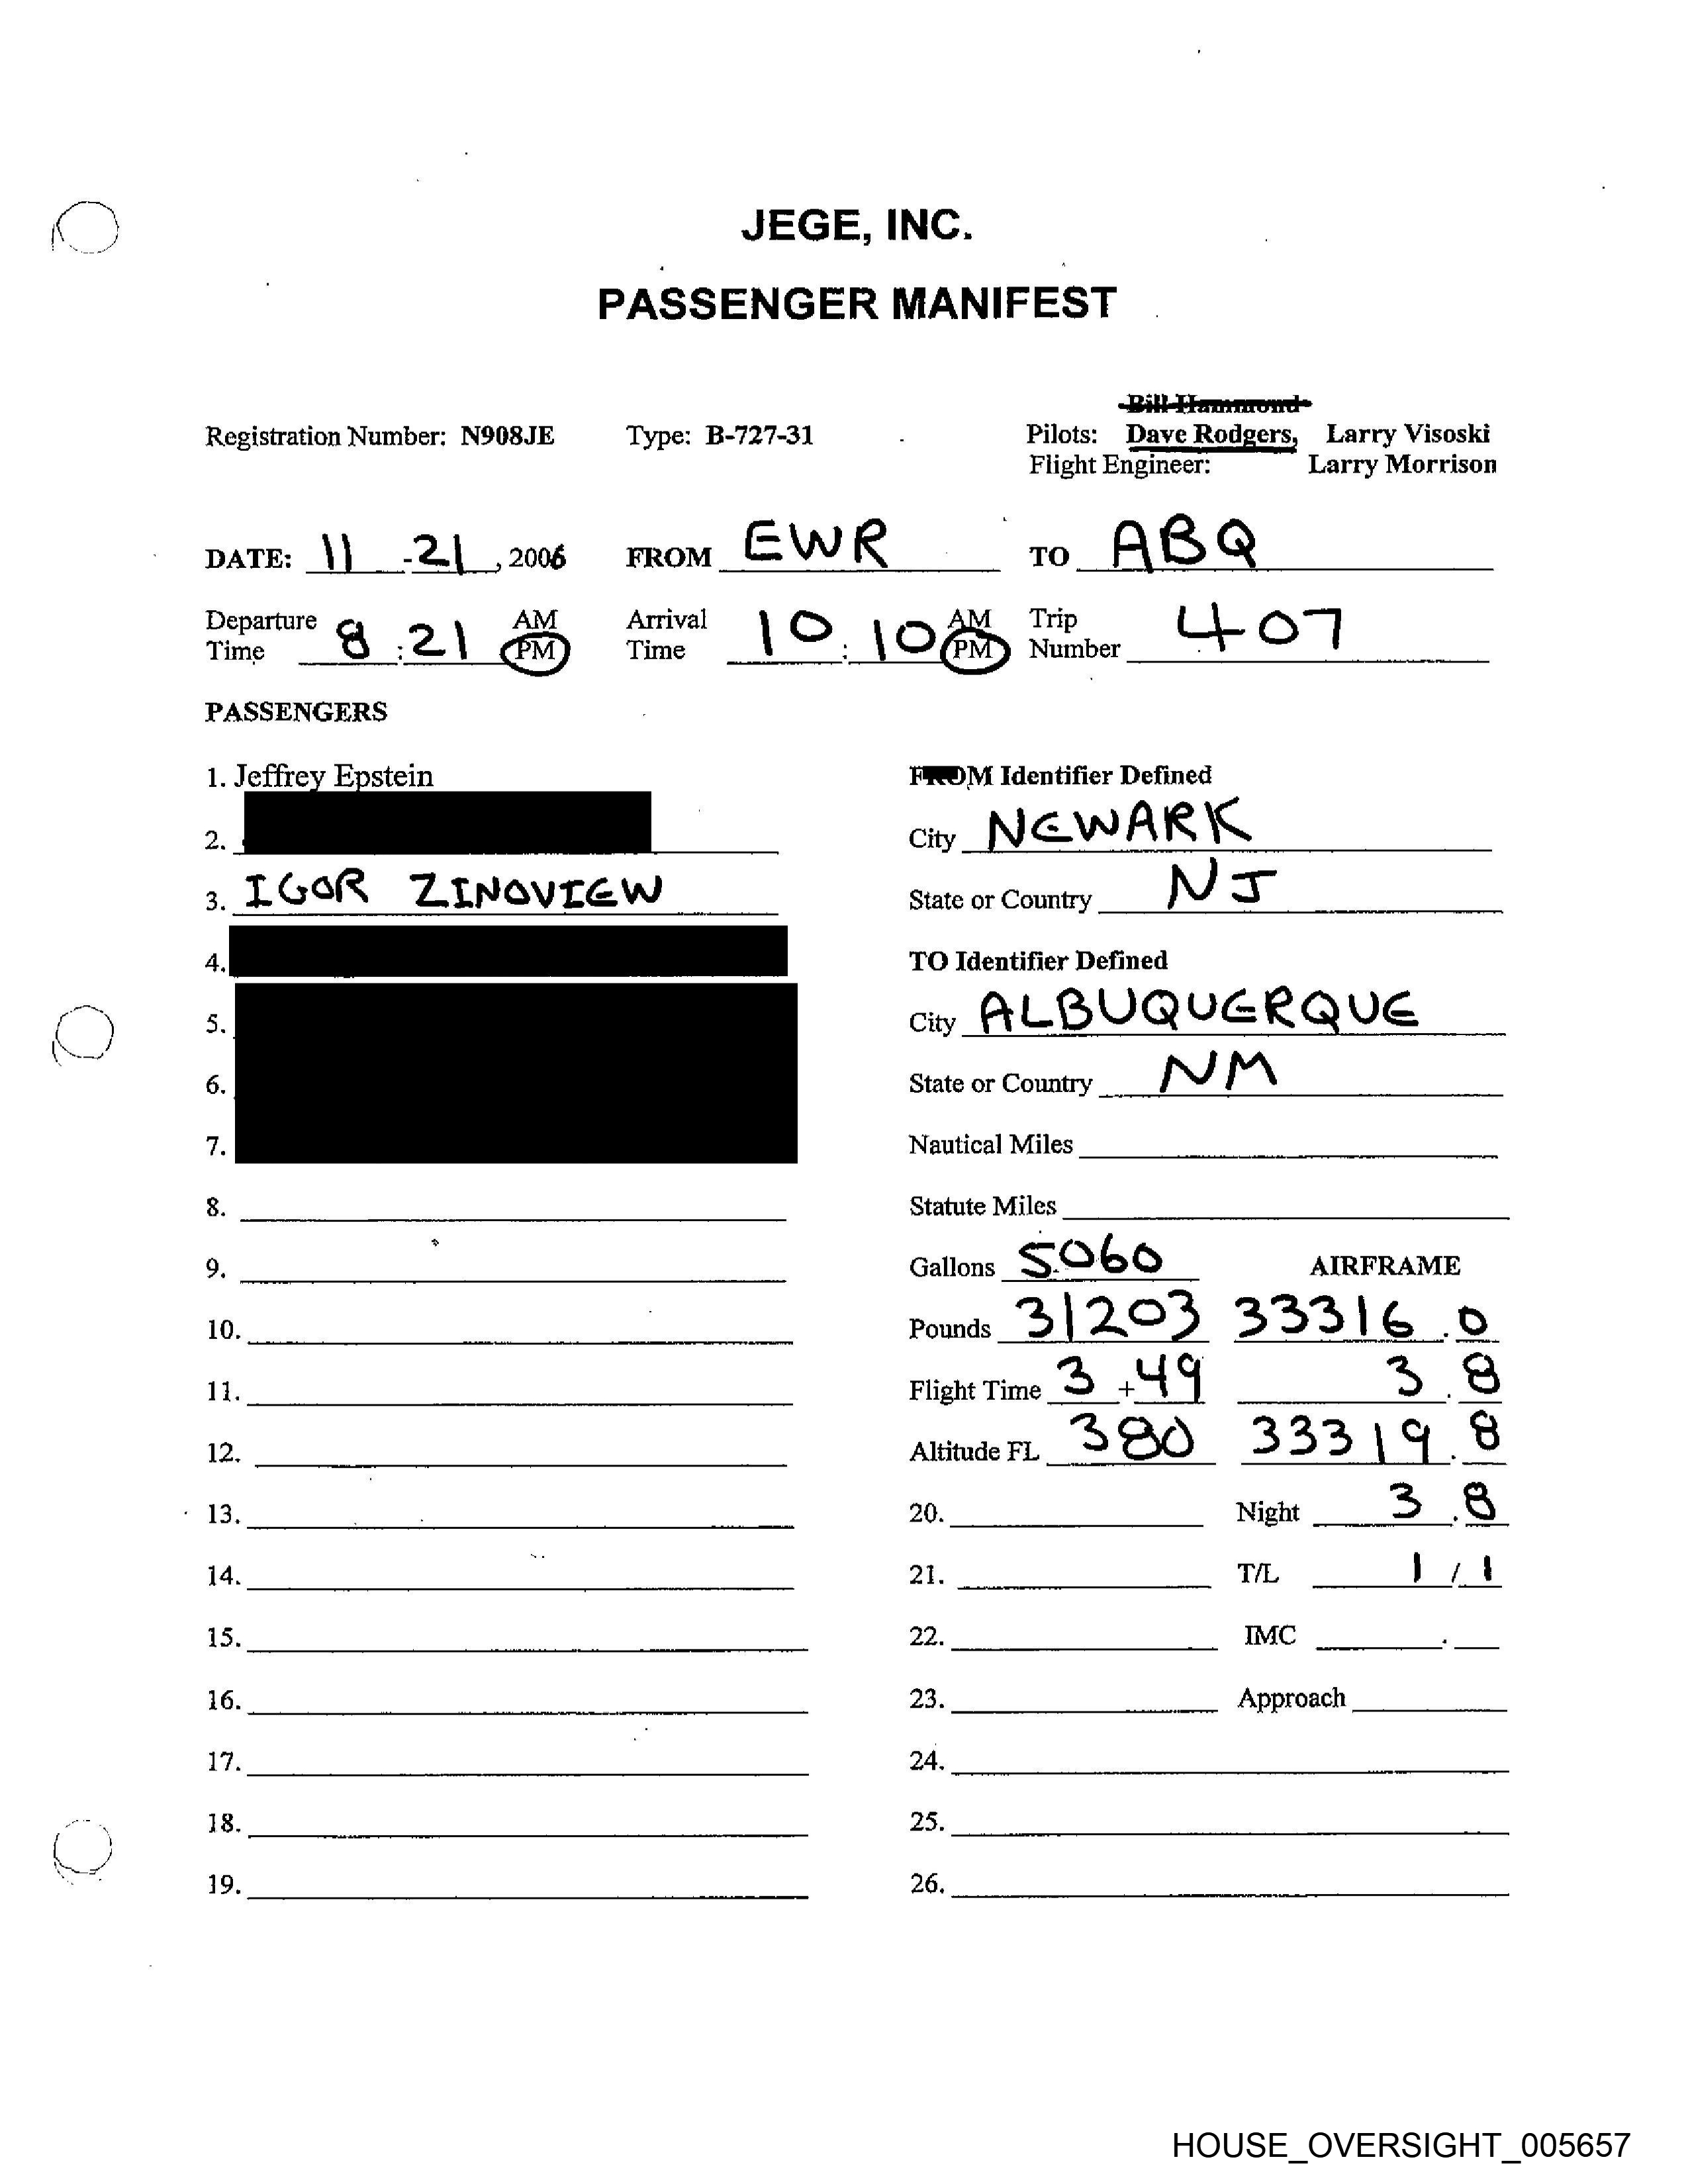 JEGE, INC.
PASSENGER MANIFEST
Bill Hammond
Registration Number: N908JE Type: B-727-31 Pilots: Dave Rodgers, Larry Visoski
Flight Engineer: Larry Morrison
DATE: 11 - 21, 2006 FROM EWR TO ABQ
Departure Time 8:21 AM PM Arrival Time 10:10 AM PM Trip Number 407
PASSENGERS
1. Jeffrey Epstein
2.
3. IGOR ZINOVIEW
4.
5.
6.
7.
8.
9.
10.
11.
12.
13.
14.
15.
16.
17.
18.
19.
FROM Identifier Defined
City NEWARK
State or Country NJ
TO Identifier Defined
City ALBUQUERQUE
State or Country NM
Nautical Miles
Statute Miles
Gallons 5060 AIRFRAME
Pounds 31203 33316.0
Flight Time 3 + 49 3.8
Altitude FL 380 33319.8
20. Night 3.8
21. T/L 1 / 1
22. IMC .
23. Approach
24.
25.
26.
HOUSE_OVERSIGHT_005657